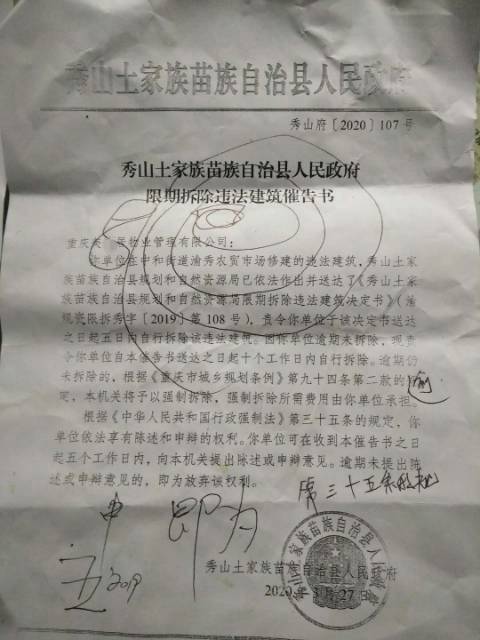 秀山土家族苗族自治县人民政府
秀山府〔2020〕107号
秀山土家族苗族自治县人民政府
限期拆除违法建筑催告书
重庆 物业管理有限公司：
你单位在中和街道渝秀农贸市场修建的违法建筑，秀山土家
族苗族自治县规划和自然资源局已依法作出并送达了《秀山土家
族苗族自治县规划和自然资源局限期拆除违法建筑决定书》（渝
规资限拆秀字〔2019〕第108号），责令你单位于该决定书送达
之日起五日内自行拆除该违法建筑。因你单位逾期未拆除，现责
令你单位自本催告书送达之日起十个工作日内自行拆除。逾期仍
未拆除的，根据《重庆市城乡规划条例》第九十四条第二款的规
定，本机关将予以强制拆除，强制拆除所需费用由你单位承担。
根据《中华人民共和国行政强制法》第三十五条的规定，你
单位依法享有陈述和申辩的权利。你单位可在收到本催告书之日
起五个工作日内，向本机关提出陈述或申辩意见。逾期未提出陈
述或申辩意见的，即为放弃该权利。
第三十五条
申 即为
五 2019
秀山土家族苗族自治县人民政府
2020年 月27日